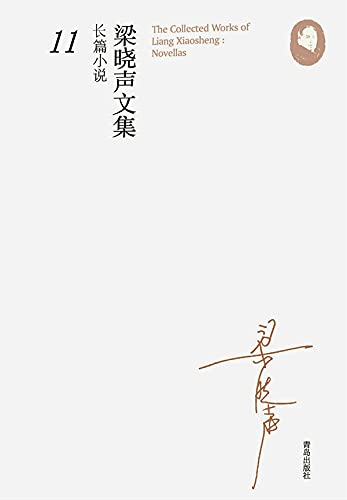 梁晓声文集
长篇小说
11
The Collected Works of
Liang Xiaosheng :
Novellas
梁晓声
青岛出版社